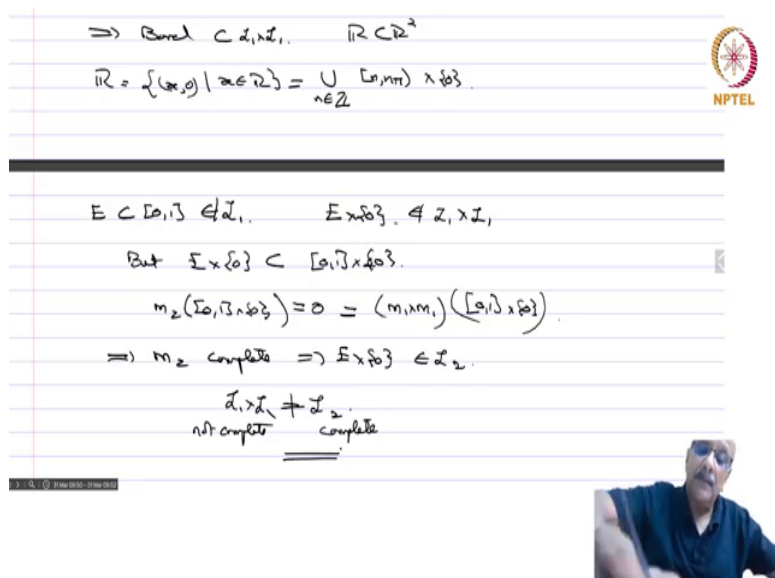 ⇒ Borel ⊂ ℒ₁×ℒ₁. ℝ⊂ℝ²
ℝ = {(x,0) | x∈ℝ} = ∪ₙ∈ℤ [n,n+1) × {0}.
NPTEL
E ⊂ [0,1] ∉ ℒ₁. E×{0} ∉ ℒ₁×ℒ₁
But E×{0} ⊂ [0,1]×{0}.
m₂([0,1]×{0}) = 0 = (m₁×m₁)([0,1]×{0}).
⇒ m₂ complete ⇒ E×{0} ∈ ℒ₂.
ℒ₁×ℒ₁ ≠ ℒ₂.
not complete complete
31 Mar 09:50 - 31 Mar 09:52